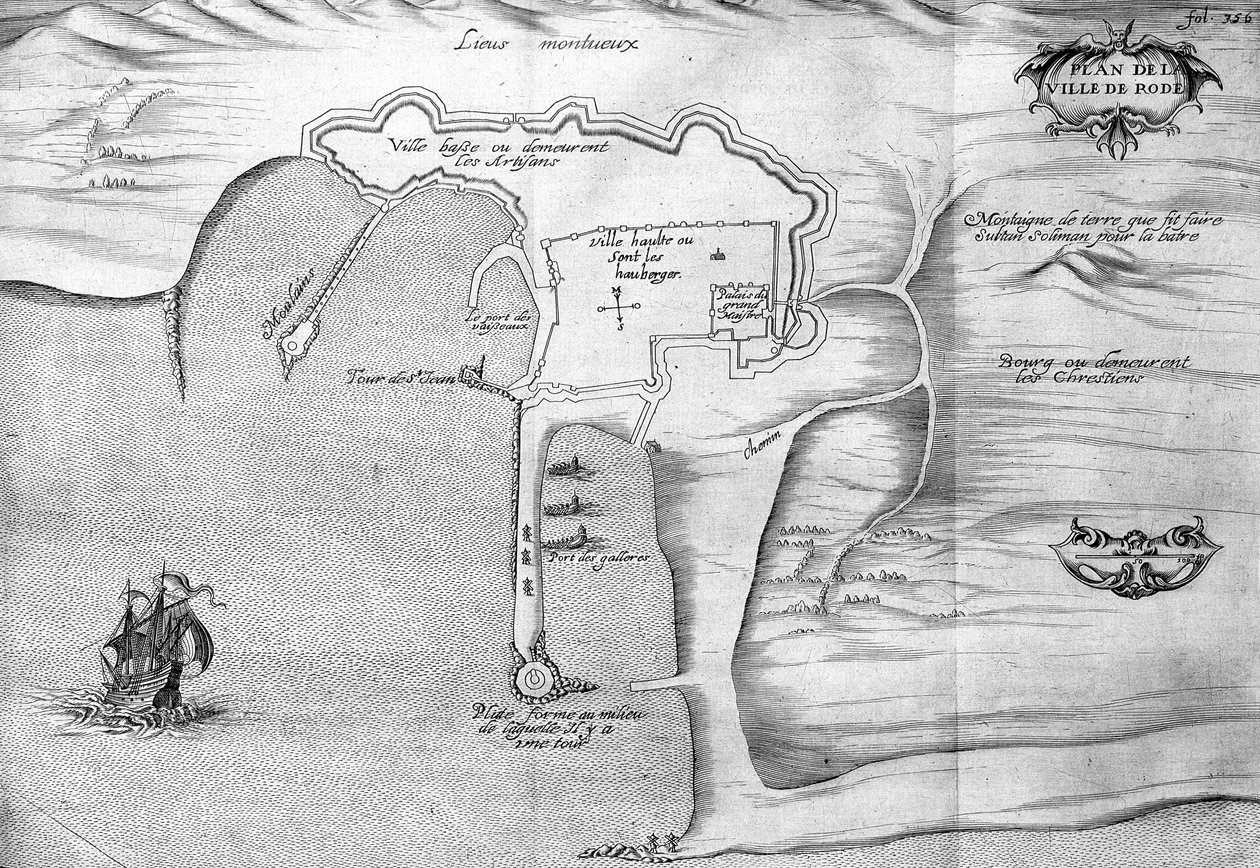 fol. 356
PLAN DE LA
VILLE DE RODE
Lieus montueux
Ville baſſe ou demeurent
les Artiſans
Montaigne de terre que fit faire
Sultan Soliman pour la batre
Ville haulte ou
Sont les
hauberger.
M
S
Palais du
grand
Maiſtre
Moulains
Le port des
vaiſſeaux
Tour de St Jean
Bourg ou demeurent
les Chrestiens
chemin
Port des galleres
50
Plate forme au milieu
de laquelle il y a
une tour